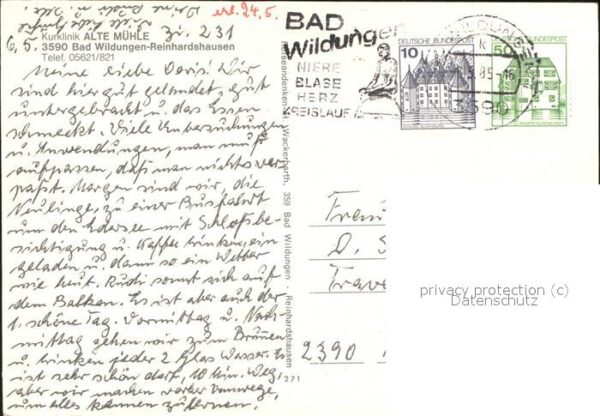 erl. 24.5.
6.5.
Zi. 231
Kurklinik ALTE MÜHLE
3590 Bad Wildungen-Reinhardshausen
Telef. 05621/821
Meine liebe Doris! Wir
sind hier gut gelandet, gut
untergebracht u. das Essen
schmeckt. Viele Untersuchungen
u. Anwendungen, man muß
aufpassen, daß man nichts ver-
paßt. Morgen sind wir, die
Neulinge, zu einer Busfahrt
um den Edersee mit Schloßbe-
sichtigung u. Kaffee trinken, ein
geladen u. dann so ein Wetter
wie heut. Rudi sonnt sich auf
dem Balkon. Es ist aber auch der
1. schöne Tag. Vormittag u. Nach-
mittag gehen wir zum Brunnen
u. trinken jeder 2 Glas Wasser. Es
ist sehr schön dort, 10 Min. Weg,
aber wir machen vorher Umwege,
um alles kennen zu lernen.
Reiseandenken Wackerbarth, 359 Bad Wildungen - Reinhardshausen
271
BAD
Wildungen
NIERE
BLASE
HERZ
KREISLAUF
3590
DEUTSCHE BUNDESPOST
10
50
Frau
D. S
Trave
2390
privacy protection (c)
Datenschutz